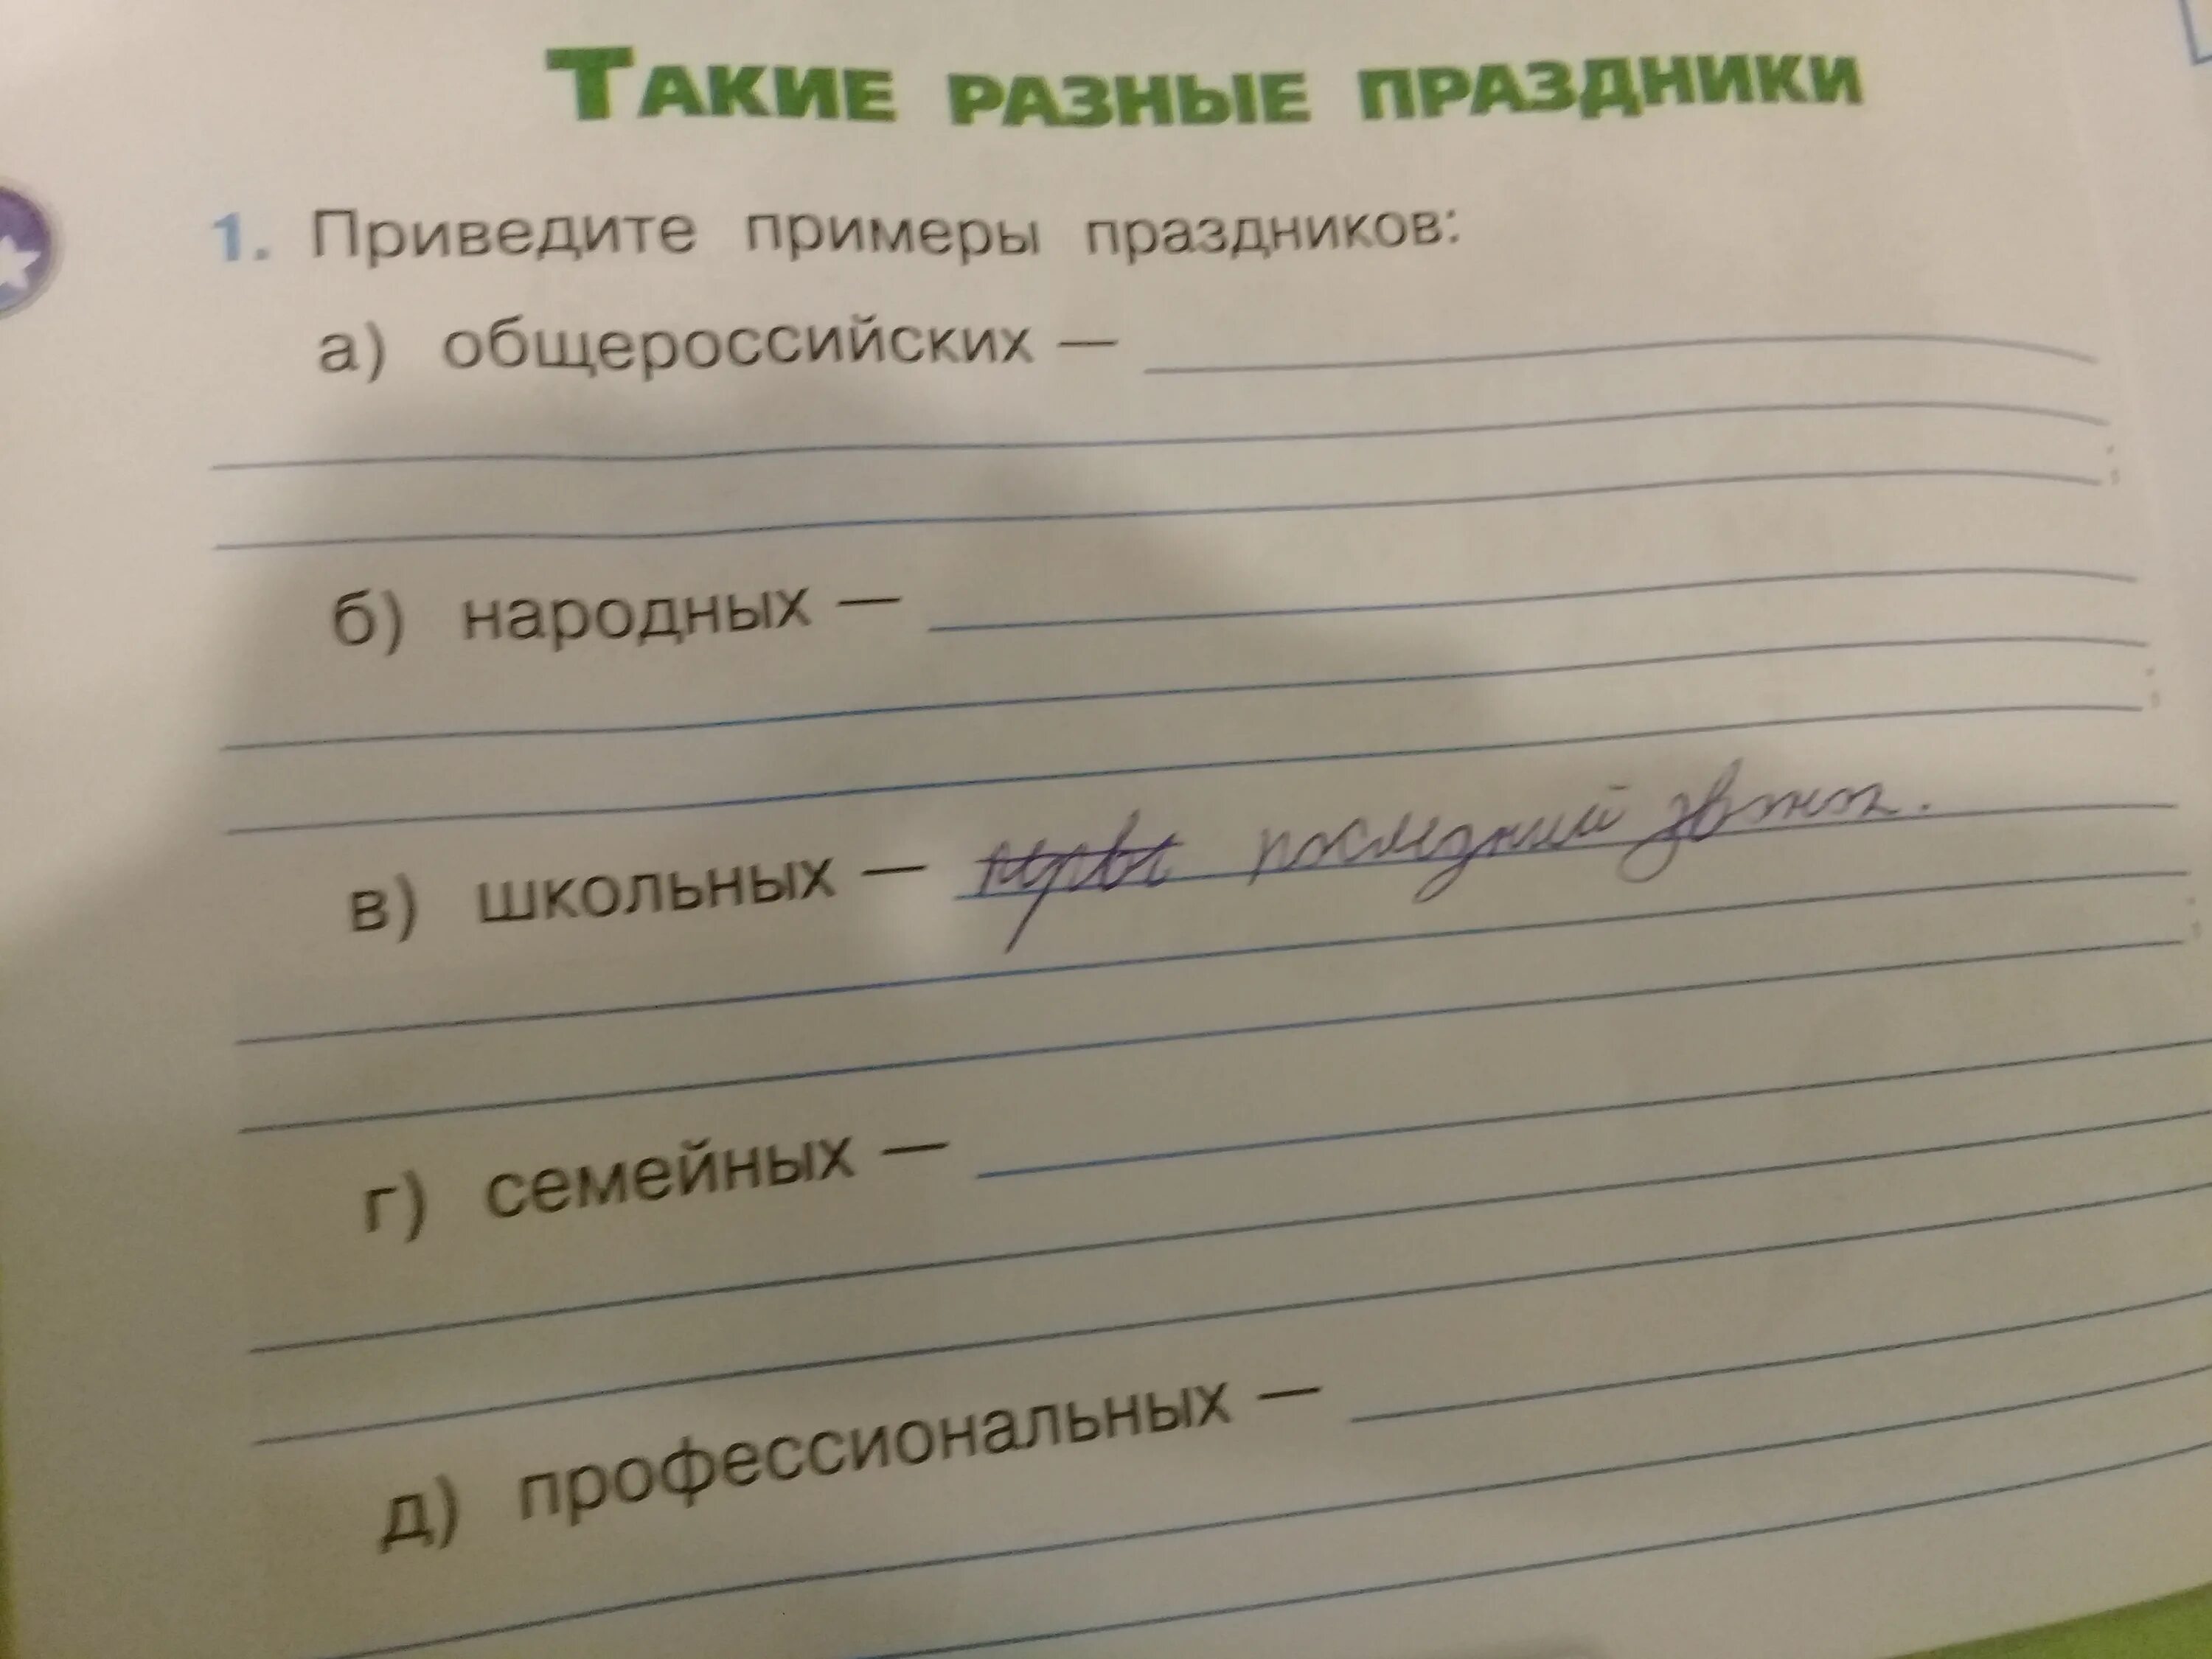 ТАКИЕ РАЗНЫЕ ПРАЗДНИКИ
1. Приведите примеры праздников:
а) общероссийских —
;
б) народных —
;
в) школьных — первы последний звонок.
;
г) семейных —
д) профессиональных —